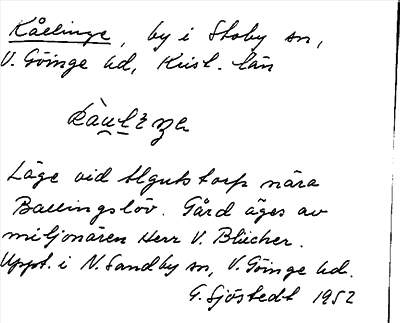 Kållinge, by i Stoby sn,
V. Göinge hd, Krist. län
Läge vid Algustorp nära
Ballingslöv. Gård äges av
miljonären Herr V. Blücher.
Uppt. i N. Sandby sn, V. Göinge hd.
G. Sjöstedt 1952